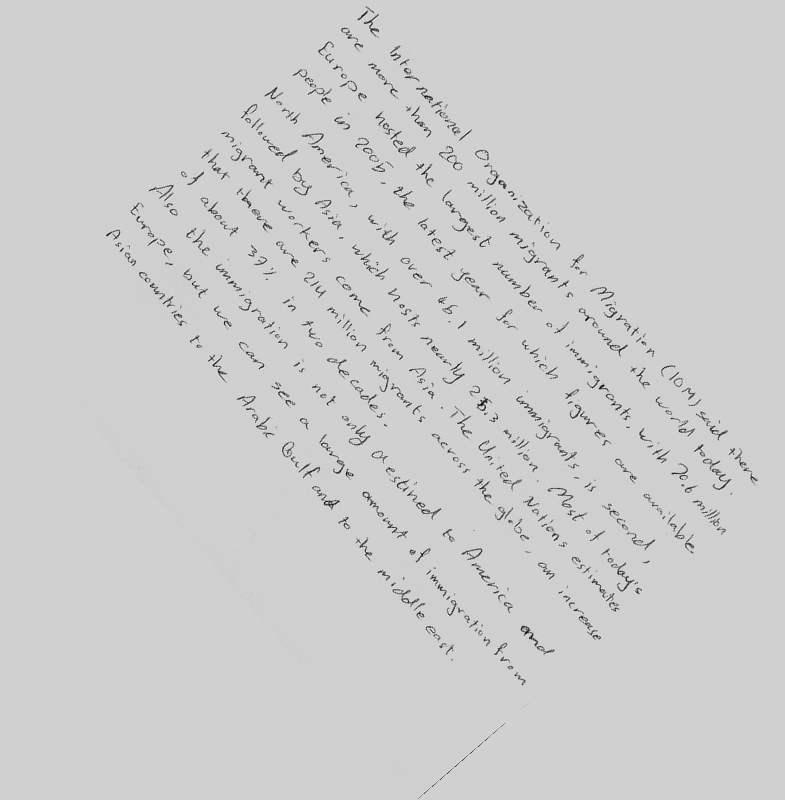 The International Organization for Migration (IOM) said there
are more than 200 million migrants around the world today.
Europe hosted the largest number of immigrants, with 70.6 million
people in 2005, the latest year for which figures are available.
North America, with over 45.1 million immigrants, is second,
followed by Asia, which hosts nearly 25.3 million. Most of today's
migrant workers come from Asia. The United Nations estimates
that there are 214 million migrants across the globe, an increase
of about 37% in two decades.
Also the immigration is not only destined to America and
Europe, but we can see a large amount of immigration from
Asian countries to the Arabic Gulf and to the middle east.